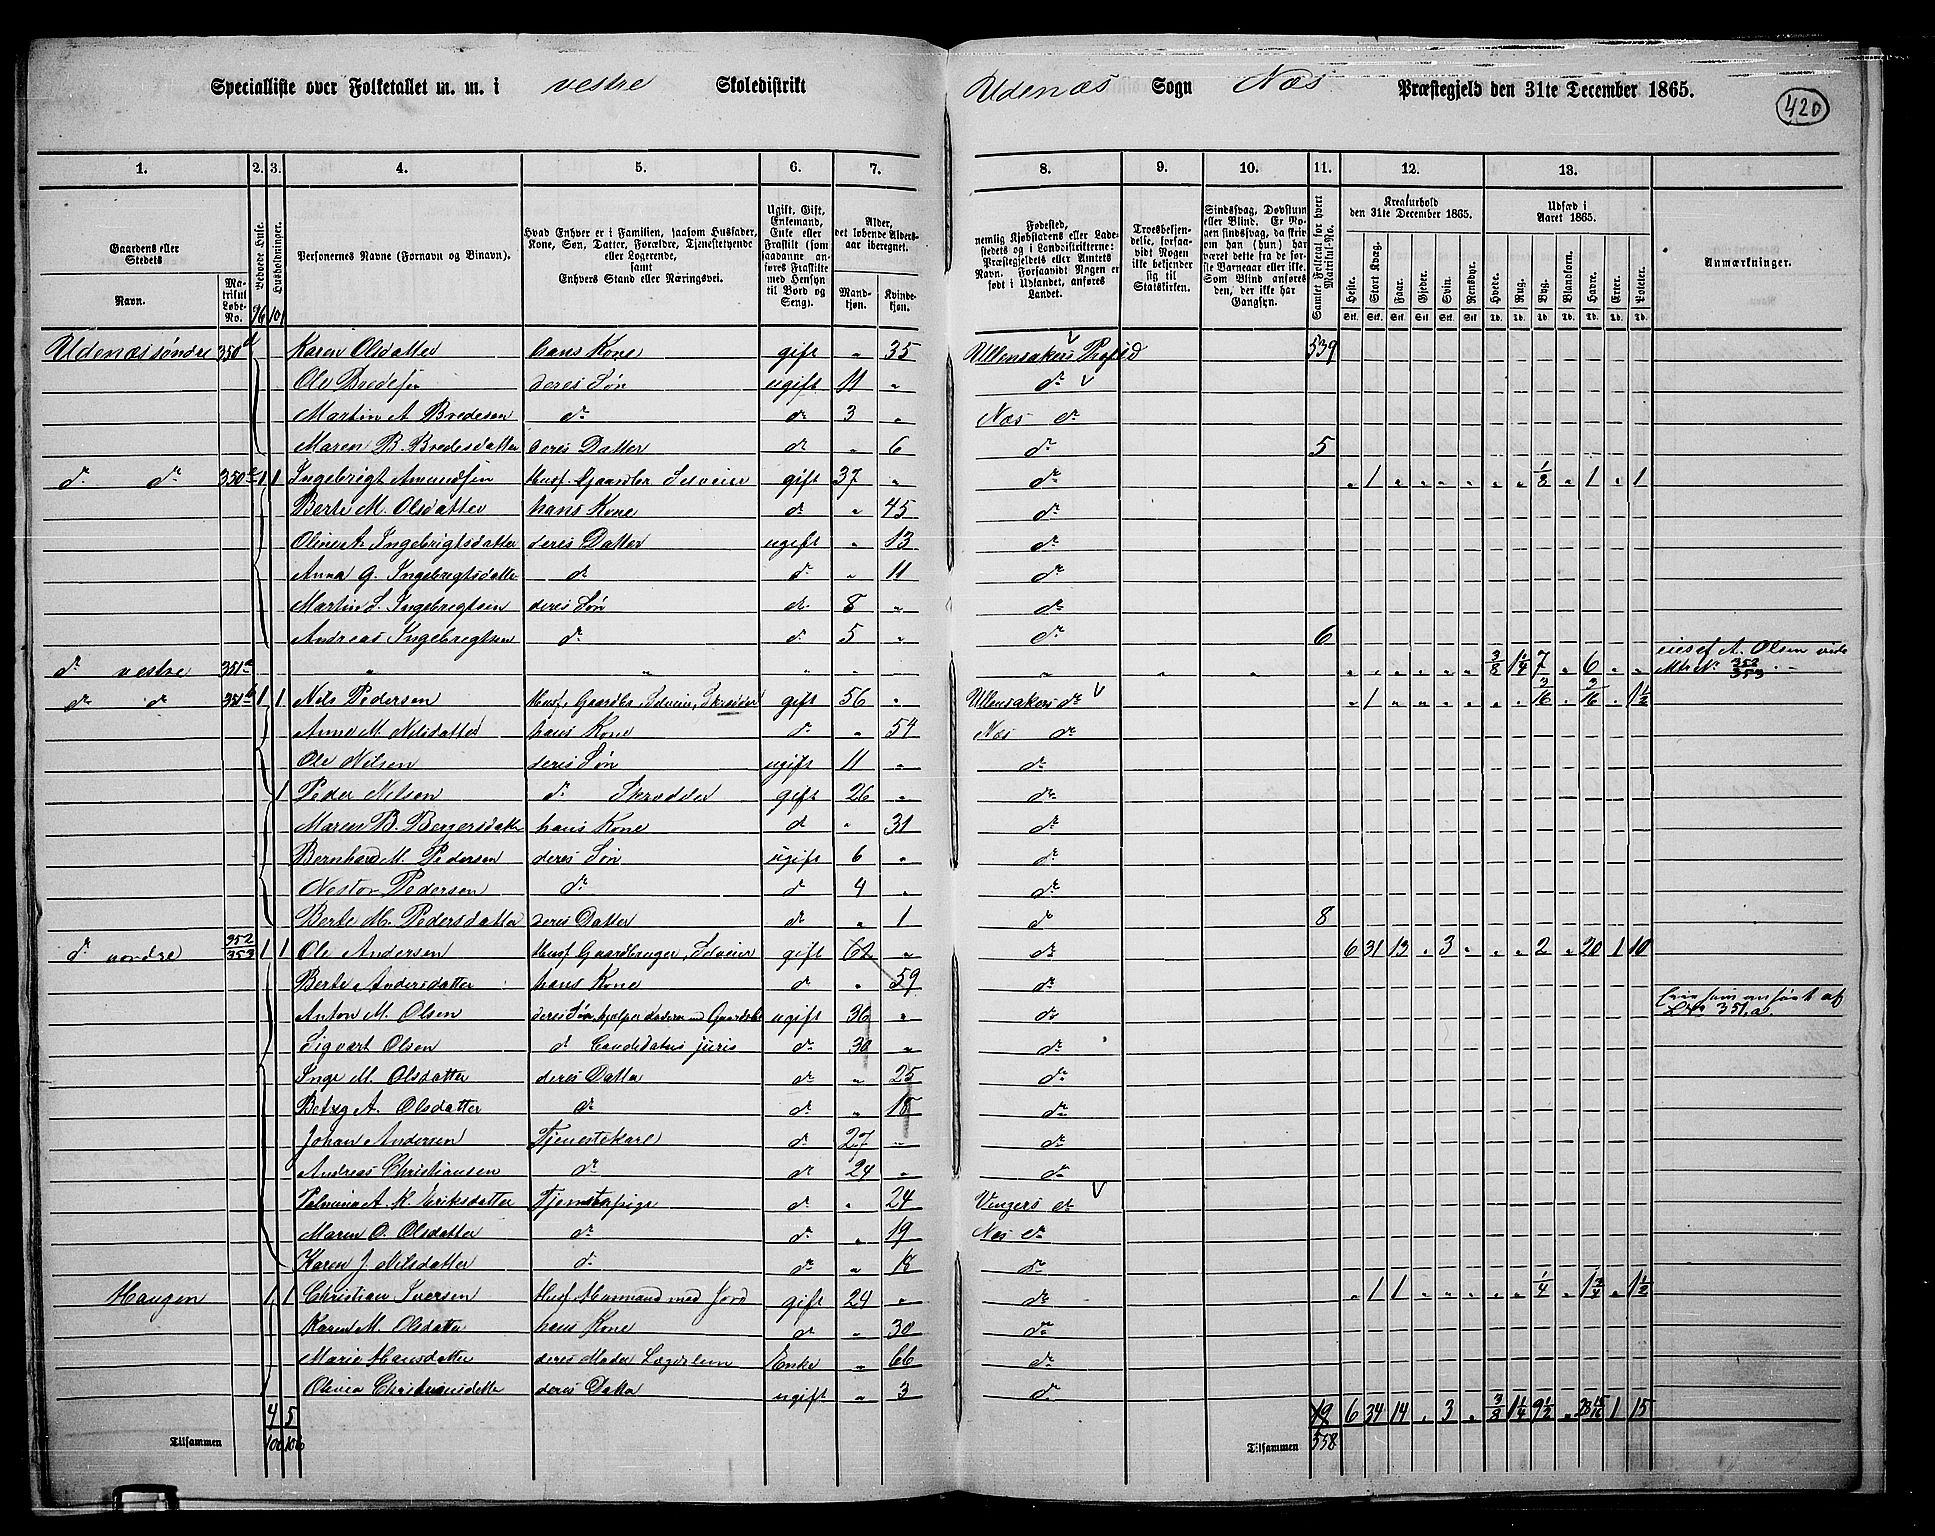 Specialliste over Folketallet m. m. i vestre Skoledistrikt Udenæs Sogn Næs Præstegjeld den 31te December 1865.
420
1. 2. 3. 4. 5. 6. 7. 8. 9. 10. 11. 12. 13.
Gaardens eller Stedets
Navn.
Matrikul Løbe-No.
Beboede Huse.
Husholdninger.
Personernes Navne (Fornavn og Binavn).
Hvad Enhver er i Familien, saasom Husfader, Kone, Søn, Datter, Forældre, Tjenestetyende eller Logerende, samt Enhvers Stand eller Næringsvei.
Ugift, Gift, Enkemand, Enke eller Fraskilt (som saadanne anføres Fraskilte med Hensyn til Bord og Seng).
Alder, det løbende Aldersaar iberegnet.
Mandkjøn.
Kvindekjøn.
Fødested, nemlig Kjøbstadens eller Ladestedets og i Landdistrikterne: Præstegjeldets eller Amtets Navn. Forsaavidt Nogen er født i Udlandet, anføres Landet.
Troesbekjendelse, forsaavidt Nogen ikke bekjender sig til Statskirken.
Sindssvag, Døvstum eller Blind. Er Nogen sindssvag, da skrives om han (hun) har været dette fra de første Barneaar eller ikke. Som Blind anføres den, der ikke har Gangsyn.
Samlet Folketal for hvert Matrikul-No.
Kreaturhold den 31te December 1865.
Heste. Stort Kvæg. Faar. Gjeder. Svin. Rensdyr.
Udsæd i Aaret 1865.
Hvede. Rug. Byg. Blandkorn. Havre. Erter. Poteter.
Anmærkninger.
96 101
Udenæs søndre 350d Karen Olsdatter hans Kone gift " 35 Ullensakers Prstgjd 539
Ole Bredesen deres Søn ugift 11 " do
Martin A. Bredesen do do 3 " Næs do
Maren B. Bredesdatter deres Datter do " 6 do 5
do do 350e 1 1 Ingebrigt Amundsen Husf. Gaardbr. Selveier gift 37 " do " 1 " " " " " " 1/2 " 1 " 1
Berte M. Olsdatter hans Kone do " 45 do
Oline A. Ingebrigtsdatter deres Datter ugift " 13 do
Anna G. Ingebrigtsdatter do do " 11 do
Martin S. Ingebrigtsen deres Søn do 8 " do
Andreas Ingebrigtsen do do 5 " do 6
do vestre 351a " " " " " " " " " " " " " " 3/8 1 1/4 7 " 6 " " eies af A. Olsen vide Mtr No 352 353
do do 351b 1 1 Nils Pedersen Husf. Gaardbr. Selveier, Skrædder gift 56 " Ullensakers do " 1 " " " " " " 3/16 " 3/16 " 1 1/2
Anne M. Nilsdatter hans Kone do " 54 Næs do
Ole Nilsen deres Søn ugift 11 " do
1 Peder Nilsen do Skrædder gift 26 " do
Maren B. Bergersdatter hans Kone do " 31 do
Bernhard M. Pedersen deres Søn ugift 6 " do
Nestor Pedersen do do 4 " do
Berte M. Pedersdatter deres Datter do " 1 do 8
do nordre 352 353 1 1 Ole Andersen Husf. Gaardbruger, Selveier gift 62 " do 6 31 13 " 3 " " " 2 " 20 1 10
Berte Andersdatter hans Kone do " 59 do
Anton M. Olsen deres Søn, hjelper faderen med Gaardsbr. ugift 36 " do
351.a.
Sigvart Olsen do Candidatus juris do 30 " do
Inge M. Olsdatter deres Datter do " 25 do
Betzy A. Olsdatter do do " 18 do
Johan Andersen Tjenestekarl do 27 " do
Andreas Christiansen do do 24 " do
A. K. Eriksdatter Tjenestepige do " 24 Vingers do
Maren O. Olsdatter do do " 19 Næs do
Karen J. Nilsdatter do do " 18 do
Haugen 1 1 Christian Iversen Husf. Husmand med Jord gift 24 " do " 1 1 " " " " " 1/4 " 1 3/4 " 1 1/2
Karen M. Olsdatter hans Kone do " 30 do
Marie Hansdatter deres Moder Lægdslem Enke " 66 do
Olivia Christiansdatter deres Datter ugift " 3 do
4 5 19 6 34 14 " 3 " 3/8 1 1/4 9 1/2 " 28 15/16 1 15
Tilsammen 100 106 Tilsammen 558